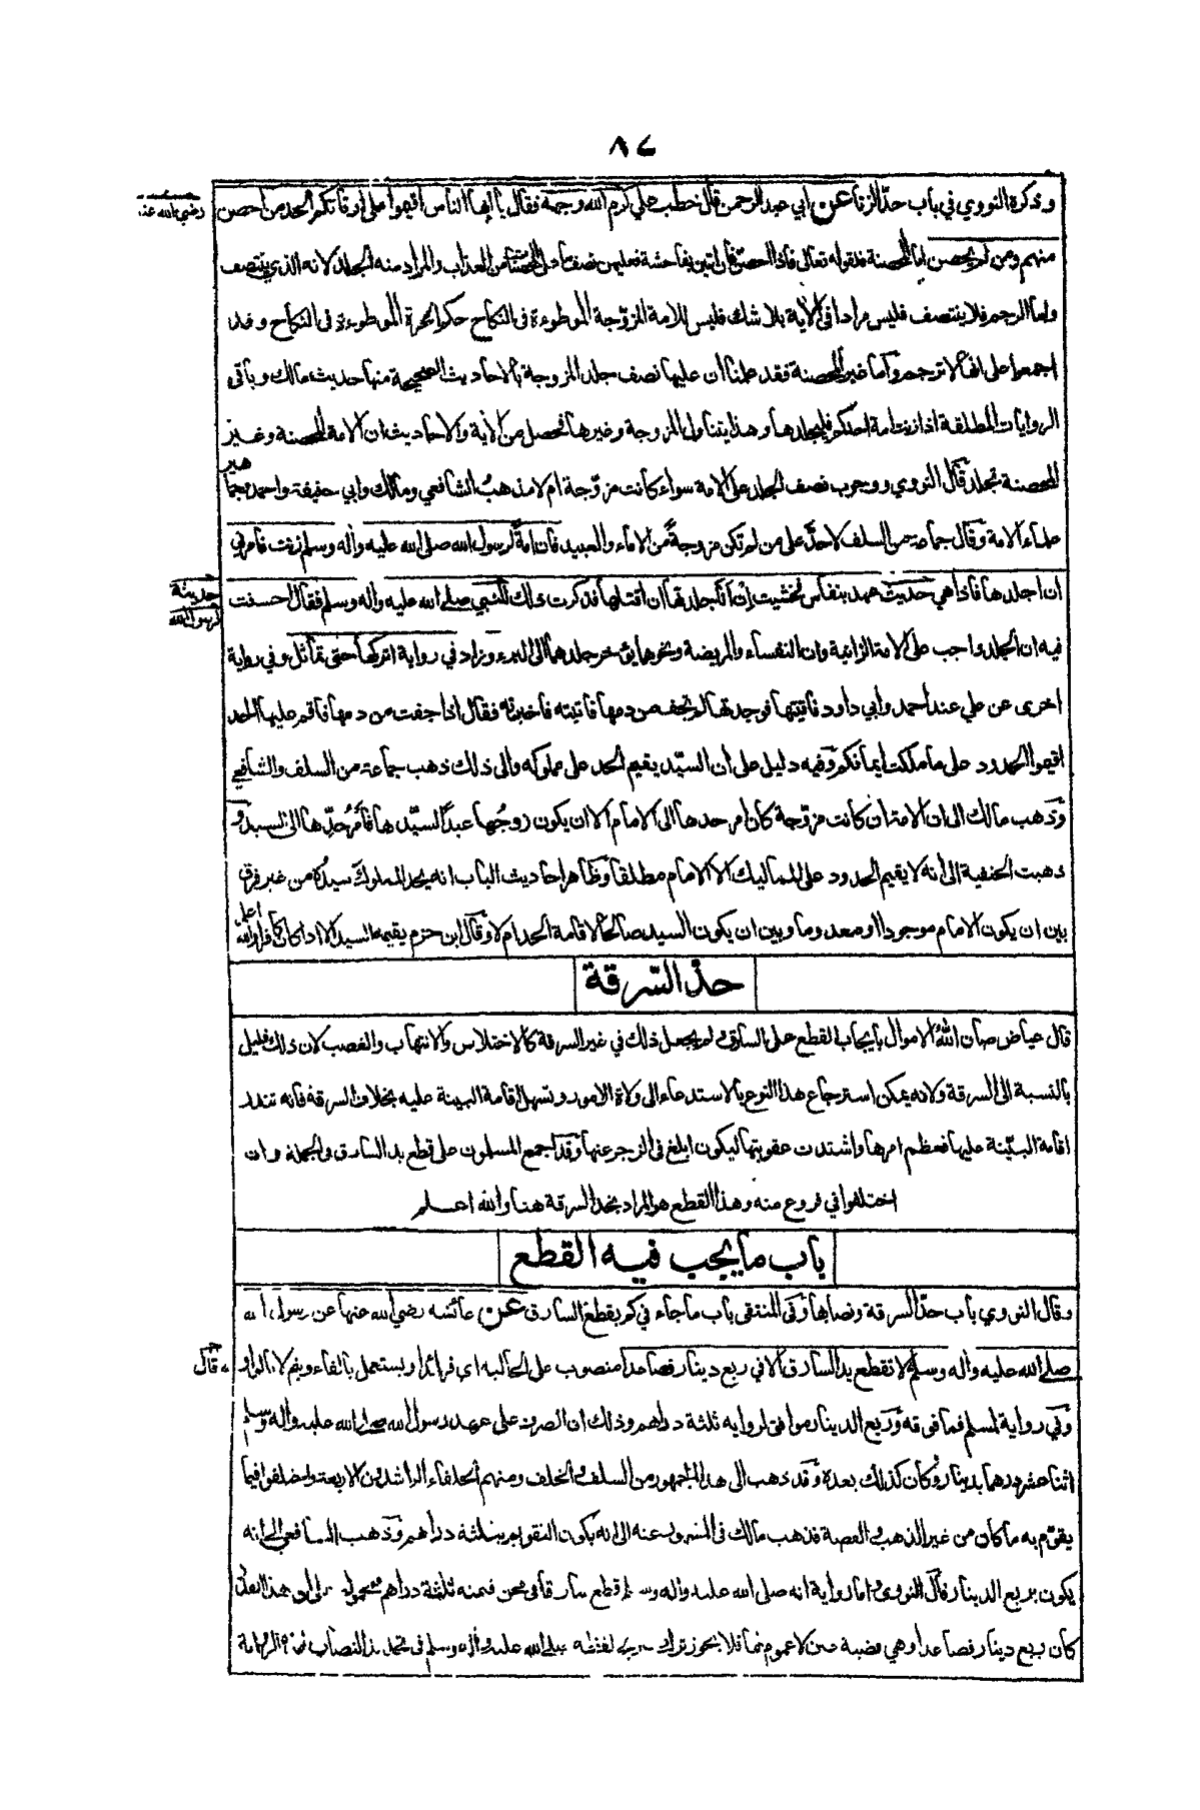 ٨٤
وذكره النووي في باب حدّ الزنا عن أبي عبد الرحمن قال خطب علي كرم الله وجهه فقال يا أيها الناس اقيموا على أرقائكم الحد من احصن
رضي الله عنه
منهم ومن لم يحصن أما المحصنة فلقوله تعالى فاذا احصن فان اتين بفاحشة فعليهن نصف ما على المحصنات من العذاب والمراد منه الجلد لانه الذي ينتصف
واما الرجم فلا ينتصف فليس مرادا في الآية بلا شك فليس للامة المزوّجة الموطوءة في النكاح حكم الحرة الموطوءة في النكاح وقد
اجمعوا على انها لا ترجم وأما غير المحصنة فقد علمنا ان عليها نصف جلد المزوجة بالاحاديث الصحيحة منها حديث مالك وباقي
الروايات المطلقة اذا زنت امة احدكم فليجلدها وهذا يتناول المزوجة وغيرها فحصل من الآية والاحاديث ان الامة المحصنة وغير
المحصنة تجلد قال النووي ووجوب نصف الجلد على الامة سواء كانت مزوّجة ام لا مذهب الشافعي ومالك وابي حنيفة واحمد وجماهير
علماء الامة وقال جماعة من السلف لا حدّ على من لم تكن مزوجة من الاماء والعبيد فان امة لرسول الله صلى الله عليه وآله وسلم زنت فامرني
ان اجلدها فاذا هي حديث عهد بنفاس فخشيت إن أنا جلدتها أن اقتلها فذكرت ذلك للنبي صلى الله عليه وآله وسلم فقال احسنت
حديثة
لرسول الله
فيه ان الجلد واجب على الامة الزانية وان النفساء والمريضة ونحوهما يؤخر جلدهما الى البرء وزاد في رواية اتركها حتى تماثل وفي رواية
اخرى عن علي عند احمد وابي داود فاتيتها فوجدتها لم تجف من دمها فاتيته فاخبرته فقال اذا جفت من دمها فاقم عليها الحد
اقيموا الحدود على ما ملكت ايمانكم وفيه دليل على ان السيّد يقيم الحد على مملوكه والى ذلك ذهب جماعة من السلف والشافعي
وذهب مالك الى ان الامة ان كانت مزوّجة كان امر حدها الى الامام الا ان يكون زوجها عبدًا لسيّدها فامر حدّها الى السيد و
ذهبت الحنفية الى انه لا يقيم الحدود على المماليك الا الامام مطلقا وظاهر احاديث الباب انه يحد المملوك سيده من غير فرق
بين ان يكون الامام موجودا او معدوما وبين ان يكون السيد صالحا لاقامة الحد ام لا وقال ابن حزم يقيمه السيد الا اذا كان كافرا والله اعلم
حدّ السّرقة
قال عياض صان الله الاموال بايجاب القطع على السارق ولم يجعل ذلك في غير السرقة كالاختلاس والانتهاب والغصب لان ذلك قليل
بالنسبة الى السرقة ولانه يمكن استرجاع هذا النوع بالاستدعاء الى ولاة الامور وتسهل اقامة البينة عليه بخلاف السرقة فانه تندر
اقامة البيّنة عليها فعظم امرها واشتدت عقوبتها ليكون ابلغ في الزجر عنها وقد اجمع المسلمون على قطع يد السارق في الجملة وان
اختلفوا في فروع منه وهذا القطع هو المراد بحد السرقة هنا والله اعلم
باب ما يجب فيه القطع
وقال النووي باب حدّ السرقة ونصابها وفي المنتقى باب ما جاء في كم يقطع السارق عن عائشة رضي الله عنها عن رسول الله
صلى الله عليه وآله وسلم لا تقطع يد السارق الا في ربع دينار فصاعدا منصوب على الحالية اي فزائدا ويستعمل بالفاء وبثم لا بالواو
قال
وفي رواية لمسلم فما فوقه وربع الدينار موافق لرواية ثلثة دراهم وذلك ان الصرف على عهد رسول الله صلى الله عليه وآله وسلم
اثنا عشر درهما بدينار وكان كذلك بعده وقد ذهب الى هذا الجمهور من السلف والخلف ومنهم الخلفاء الراشدون الاربعة واختلفوا فيما
يقوّم به ما كان من غير الذهب والفضة فذهب مالك في المشهور عنه الى انه يكون التقويم بثلثة دراهم وذهب الشافعي الى انه
يكون بربع الدينار قال النووي واما رواية انه صلى الله عليه وآله وسلم قطع سارقا في مجن قيمته ثلثة دراهم فمحمولة على ان هذا القدر
كان ربع دينار فصاعدا وهي قضية عين لا عموم لها فلا يجوز ترك صريح لفظه صلى الله عليه وآله وسلم في تحديد النصاب لهذه الرواية